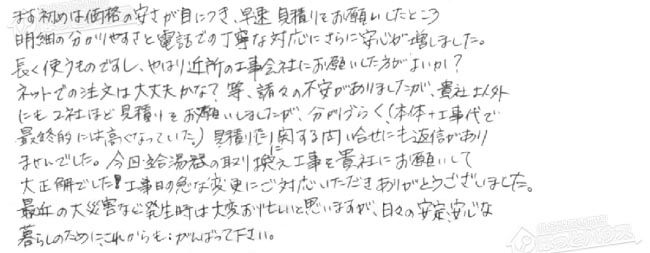 まず初めは価格の安さが目につき、早速見積りをお願いしたところ
明細の分かりやすさと電話での丁寧な対応にさらに安心が増しました。
長く使うものですし、やはり近所の工事会社にお願いした方がよいか?
ネットでの注文は大丈夫かな?等、諸々の不安がありましたが、貴社以外
にも2社ほど見積りをお願いしましたが、分かりづらく(本体+工事代で
最終的には高くなっていた。)見積りに関する問い合せにも返信があり
ませんでした。今回給湯器の取り換え工事を貴社にお願いして
大正解でした!工事日の急な変更にご対応いただきありがとうございました。
最近の大災害など発生時は大変お忙しいと思いますが、日々の安定、安心な
暮らしのために、これからも、がんばって下さい。